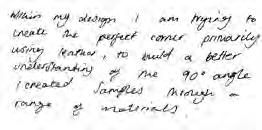 Within my design I am trying to
create the perfect corner primarily
using leather, to build a better
understanding of the 90° angle
I created samples through a
range of materials